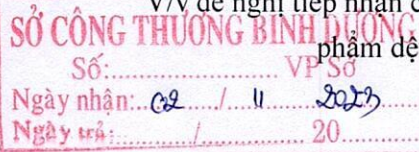 V/v đề nghị tiếp nhận c
SỞ CÔNG THƯƠNG BÌNH DƯƠNG
phẩm dệ
Số:.................... VP Sở
Ngày nhận: 02 / 11 2023
Ngày trả:............/............ 20............